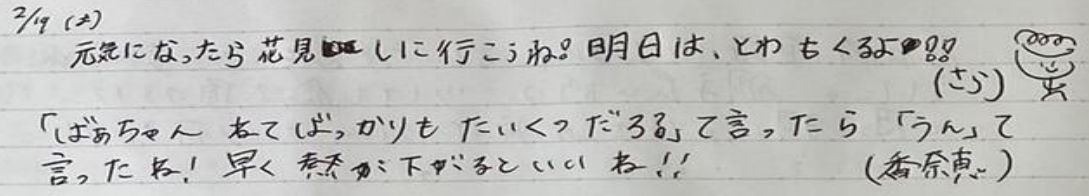 2/19 (土)
元気になったら花見しに行こうね!明日は、とわもくるよ!!
(さら)
「ばぁちゃん ねてばっかりも たいくつだろう」て言ったら「うん」て
言ったね!早く熱が下がるといいね!! (香奈恵)